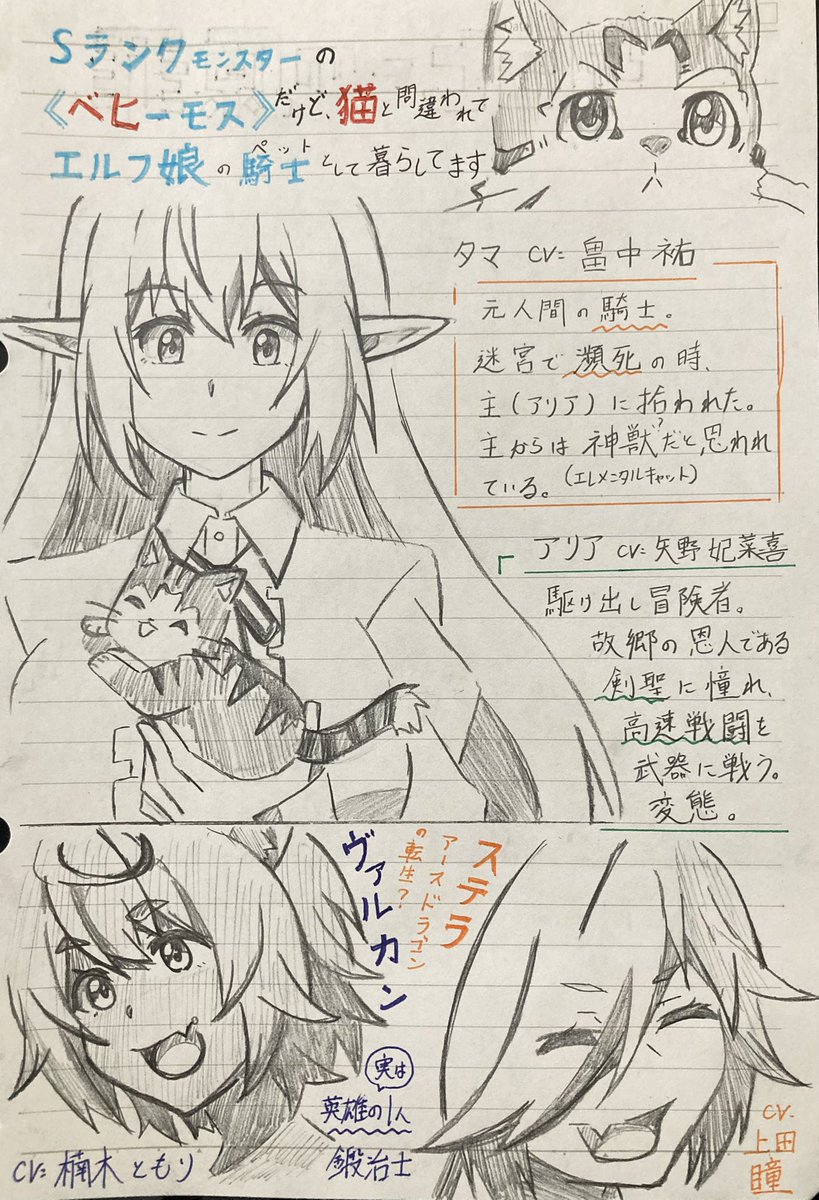 Sランクモンスターの
《ベヒーモス》だけど、猫と間違われて
エルフ娘の騎士として暮らしてます
ペット
タマ CV: 畠中 祐
元人間の騎士。
迷宮で瀕死の時、
主(アリア)に拾われた。
主からは神獣?だと思われ
ている。(エレメンタルキャット)
アリア CV: 矢野 妃菜喜
駆け出し冒険者。
故郷の恩人である
剣聖に憧れ、
高速戦闘を
武器に戦う。
変態。
ステラ
アースドラゴン
の転生?
ヴァルカン
実は
英雄の1人
鍛冶士
CV: 楠木ともり
CV.
上田
瞳